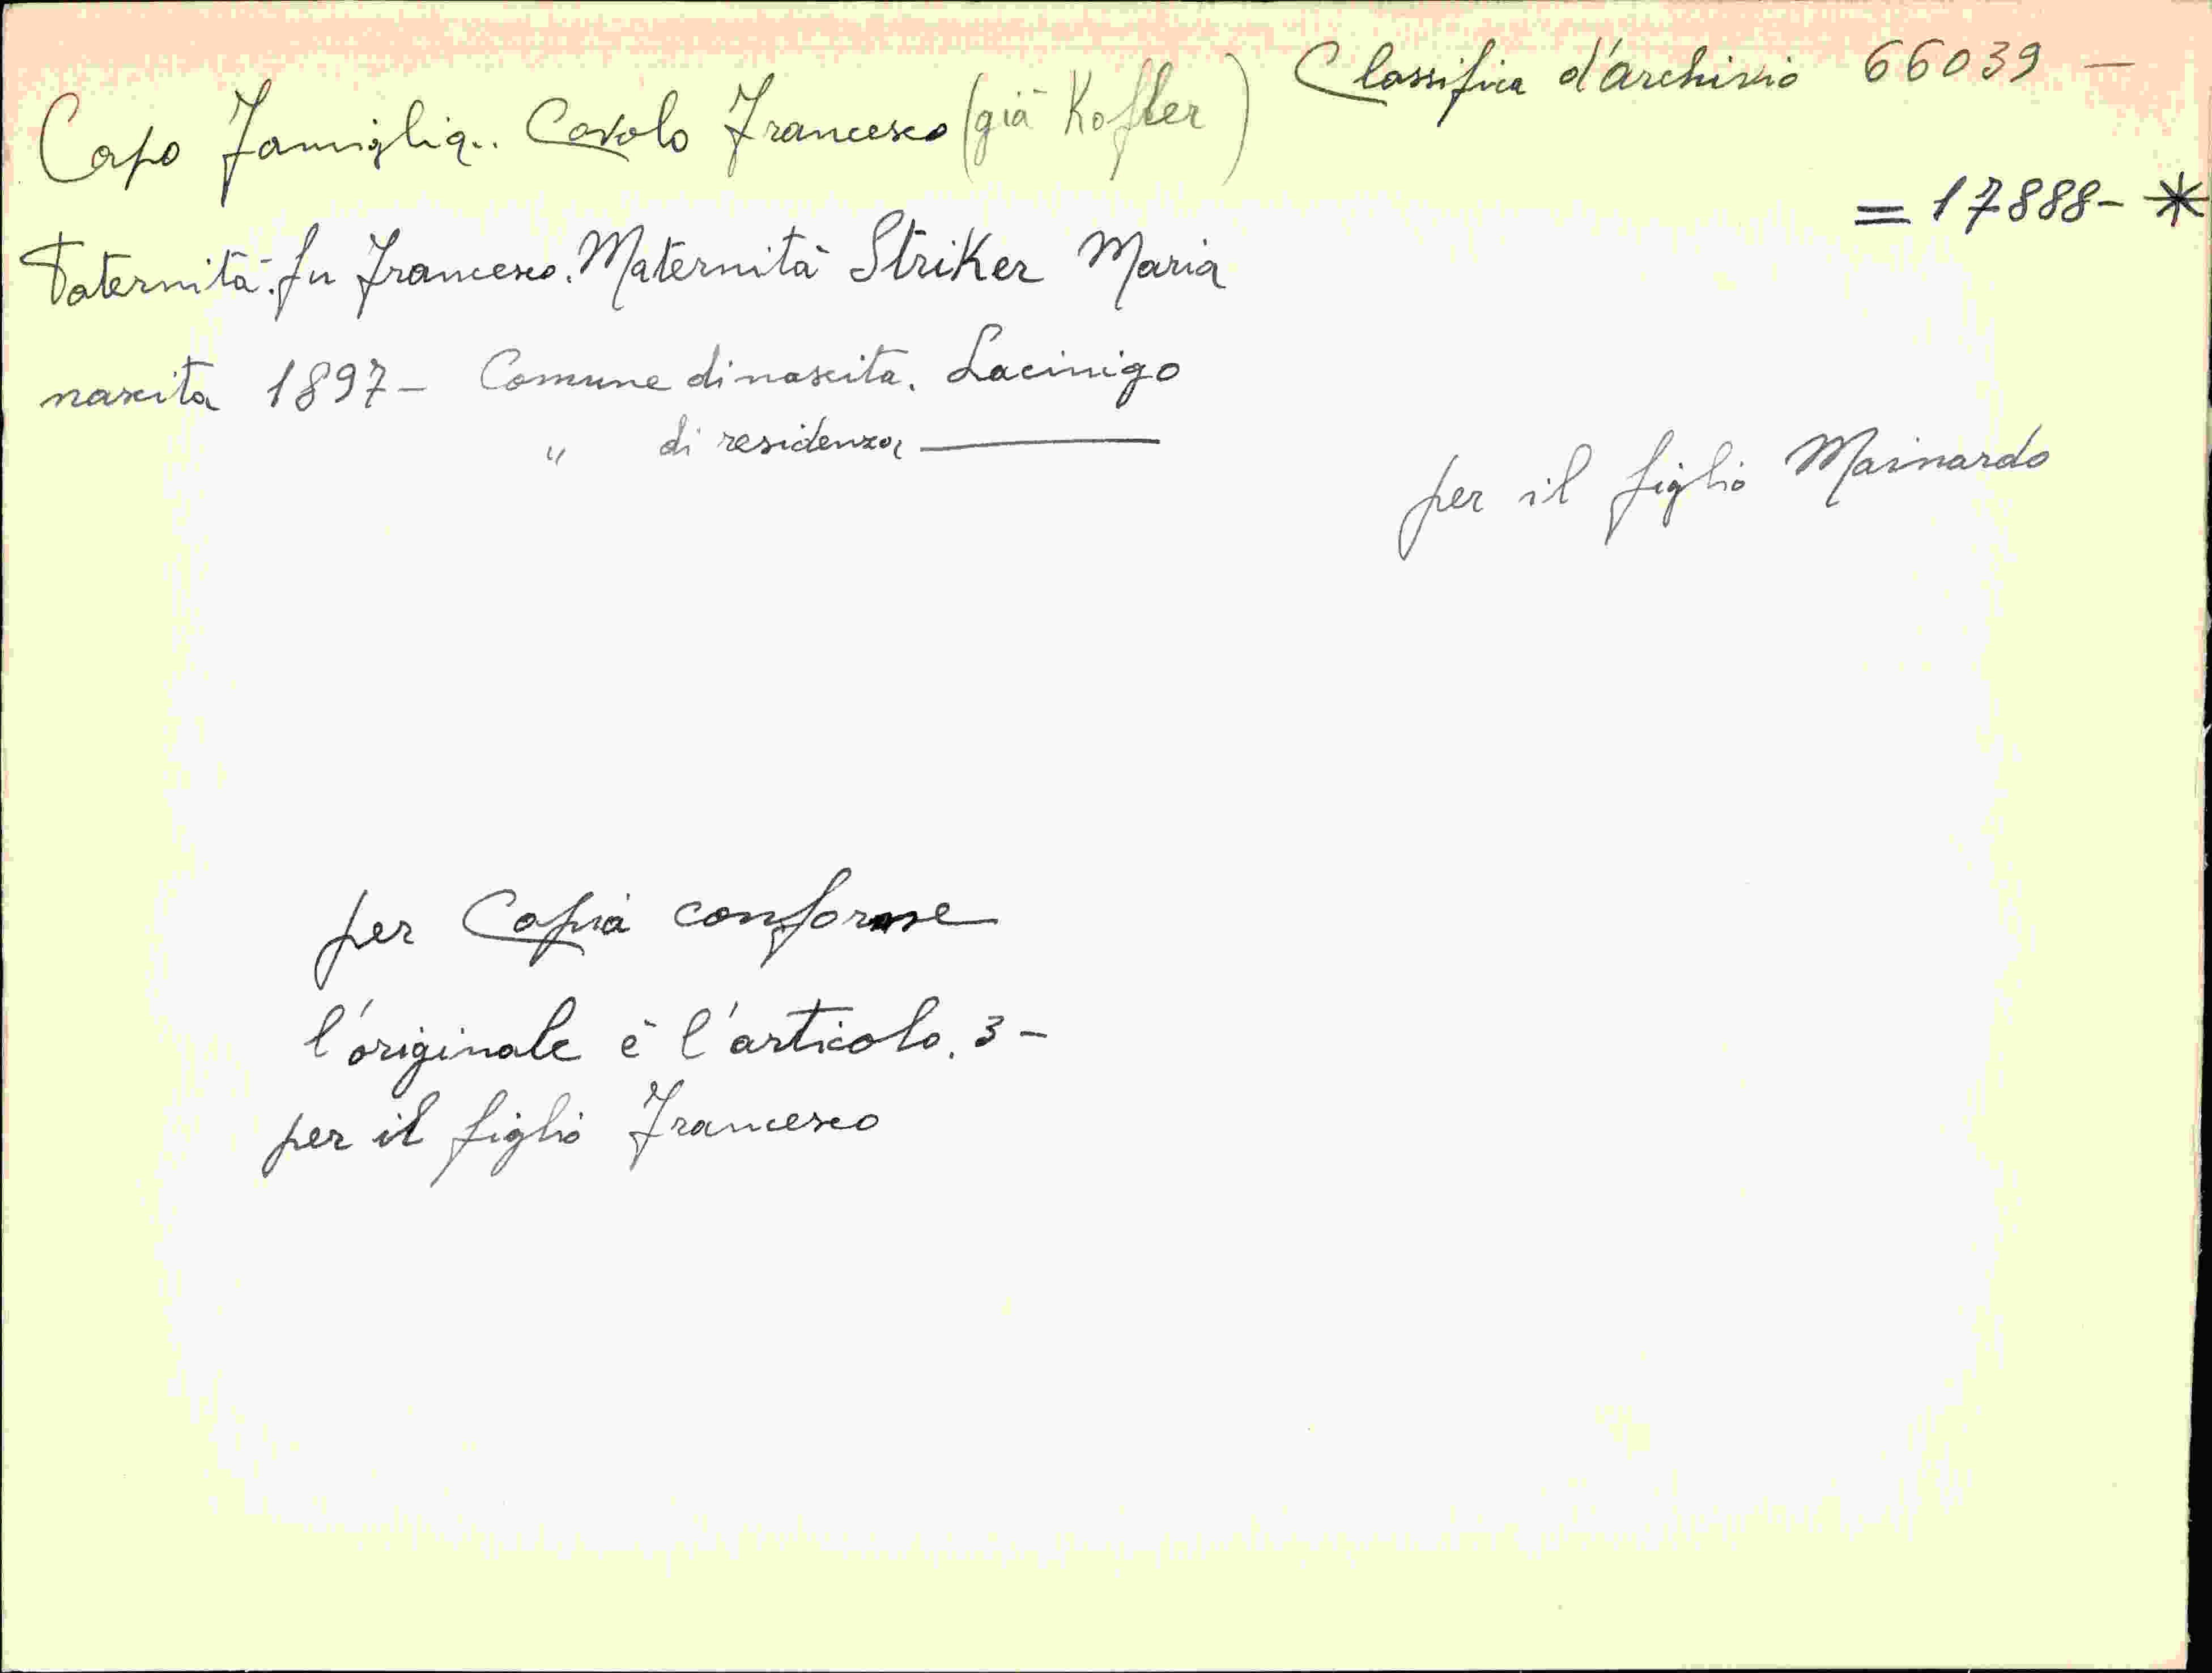 Classifica d'archivio 66039 –
Capo Famiglia.. Covolo Francesco (già Kofler)
= 17888 - *
Paternità. fu Francesco. Maternità Striker Maria
nascita 1897 - Comune di nascita. Lacinigo
" di residenza ———
per il figlio Mainardo
per Copia conforme
l'originale è l'articolo. 3 -
per il figlio Francesco